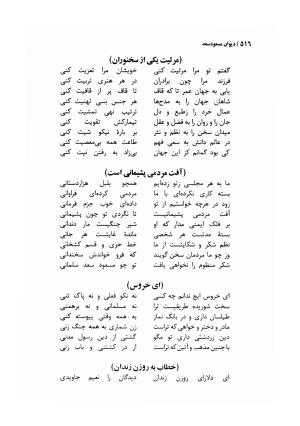 ۵۱۶ / دیوان مسعودسعد
(مرثیت یکی از سخنوران)
گفتم تو مرا مرثیت کنی خویشان مرا تعزیت کنی
فرزند مرا چون برادران در هر هنری تربیت کنی
پای به جهان عمر تا که قاف تا قاف پر از قافیت کنی
شاهان جهان را به مدح‌ها هر جنس بسی تهنیت کنی
عمال خرد را ز طبع و دل ترتیب نهی تمشیت کنی
جان را و روان را به فضل و عقل تیمارکش تقویت کنی
میدان سخن را به نظم و نثر بر بارهٔ نیکو شیت کنی
در عالم دانش به سعی فهم طاعت همه بی‌معصیت کنی
کی بود گمانم کز این جهان بی‌زاد به رفتن نیت کنی
(آفت مردمی پشیمانی است)
ما به هر مجلسی ز تو زده‌ایم همچو بلبل هزاردستانی
بسته کاری نکرده‌ای با ما مردمی کرده‌ای فراوانی
زود در هرچه خواستیم از تو داده‌ای خوب جزم فرمانی
آفت مردمی پشیمانیست تا نگردی تو چون پشیمانی
بر فلک ایمنی مدار که او شیر چنگیست مار دندانی
بستهٔ مدتست هر شخصی ماندهٔ غایتست هر جانی
نظم شکر و شکایتست از ما خط حری و قسم کشخانی
وز چو ما مردمان سخن گویند که فرو خواندش سخندانی
شکر منظوم را نخواهی یافت تو چو مسعود سعد سلمانی
(ای خروس)
ای خروس ایچ ندانم چه کسی نه نکو فعلی و نه پاک تنی
سخت شوریده طریقیست ترا نه مسلمانی و نه برهمنی
طیلسان داری و در بانگ نماز به همه وقتی پیوسته کنی
مادر و دختر و خواهر که تراست زن شماری به همه چنگ زنی
دین زردشتی داری تو مگو گشتی از دین رسول مدنی
با چنین مذهب و آئین که تراست از در کشتنی و باب زنی
(خطاب به روزن زندان)
ای دلارای روزن زندان دیدگان را نعیم جاویدی